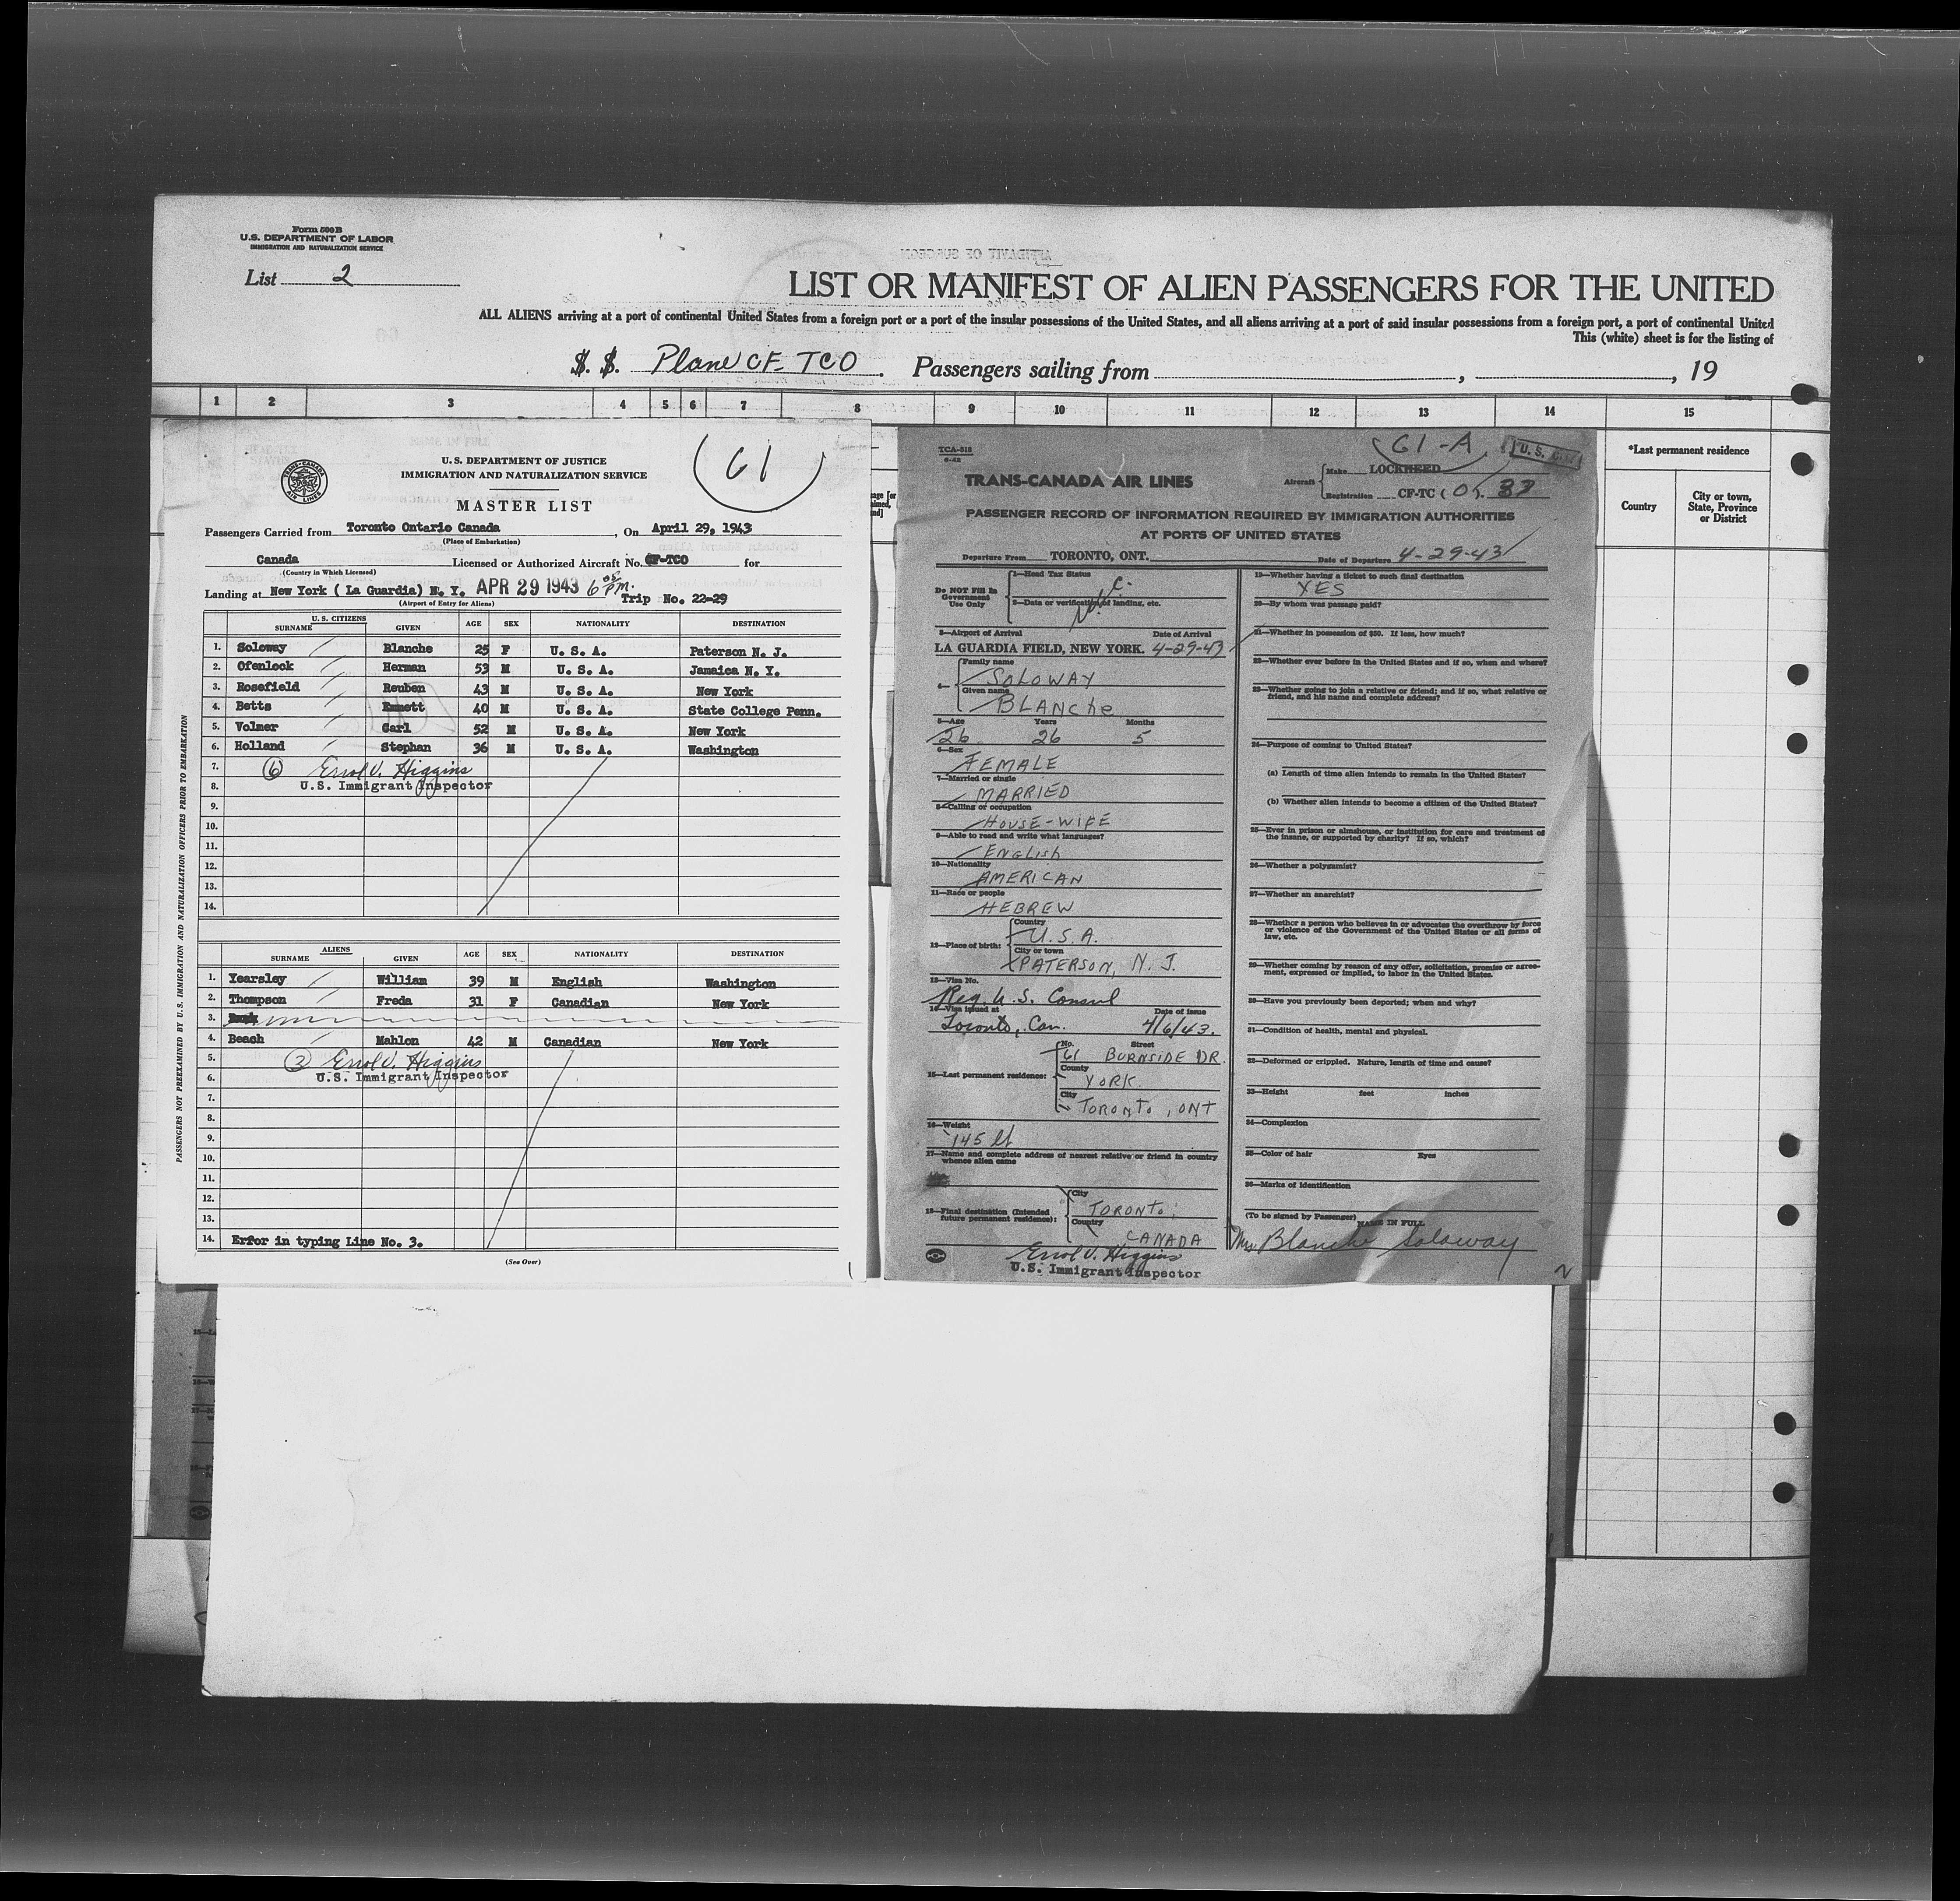 Form 500B
U.S. DEPARTMENT OF LABOR
IMMIGRATION AND NATURALIZATION SERVICE
List 2
AFFIDAVIT OF SURGEON
LIST OR MANIFEST OF ALIEN PASSENGERS FOR THE UNITED
ALL ALIENS arriving at a port of continental United States from a foreign port or a port of the insular possessions of the United States, and all aliens arriving at a port of said insular possessions from a foreign port, a port of continental United
This (white) sheet is for the listing of
S. S. Plane CF-TCO. Passengers sailing from , , 19
1 2 3 4 5 6 7 8 9 10 11 12 13 14 15
*Last permanent residence
Country
City or town, State, Province or District
61
TRANS-CANADA AIR LINES
U.S. DEPARTMENT OF JUSTICE
IMMIGRATION AND NATURALIZATION SERVICE
MASTER LIST
Passengers Carried from Toronto Ontario Canada, On April 29, 1943
(Place of Embarkation)
Canada Licensed or Authorized Aircraft No. CF-TCO for
(Country in Which Licensed)
Landing at New York ( La Guardia) N. Y. APR 29 1943 6 05 PM. Trip No. 22-29
(Airport of Entry for Aliens)
U. S. CITIZENS
SURNAME GIVEN AGE SEX NATIONALITY DESTINATION
1. Soloway Blanche 25 F U. S. A. Paterson N. J.
2. Ofenlock Herman 53 M U. S. A. Jamaica N. Y.
3. Rosefield Reuben 43 M U. S. A. New York
4. Betts Emmett 40 M U. S. A. State College Penn.
5. Volmer Carl 52 M U. S. A. New York
6. Holland Stephan 36 M U. S. A. Washington
7. (6) Errol V. Higgins
8. U.S. Immigrant Inspector
9.
10.
11.
12.
13.
14.
ALIENS
SURNAME GIVEN AGE SEX NATIONALITY DESTINATION
1. Yearsley William 39 M English Washington
2. Thompson Freda 31 F Canadian New York
3.
4. Beach Mahlon 42 M Canadian New York
5. (3) Errol V. Higgins
6. U.S. Immigrant Inspector
7.
8.
9.
10.
11.
12.
13.
14. Erfor in typing Line No. 3.
(See Over)
PASSENGERS NOT PREEXAMINED BY U. S. IMMIGRATION AND NATURALIZATION OFFICERS PRIOR TO EMBARKATION
TCA-518
6-42
61-A
TRANS-CANADA AIR LINES
Aircraft Make LOCKHEED
Registration CF-TC (O). 33
PASSENGER RECORD OF INFORMATION REQUIRED BY IMMIGRATION AUTHORITIES
AT PORTS OF UNITED STATES
Departure From TORONTO, ONT. Date of Departure 4-29-43
Do NOT Fill In Government Use Only
1—Head Tax Status
2—Data or verification of landing, etc.
3—Airport of Arrival Date of Arrival
LA GUARDIA FIELD, NEW YORK. 4-29-43
4— Family name
SOLOWAY
Given name
BLANCHE
5—Age Years Months
26 26 5
6—Sex
FEMALE
7—Married or single
MARRIED
8—Calling or occupation
HOUSE-WIFE
9—Able to read and write what languages?
ENGLISH
10—Nationality
AMERICAN
11—Race or people
HEBREW
12—Place of birth:
Country
U.S.A.
City or town
PATERSON, N. J.
13—Visa No.
Reg. U.S. Consul
14—Visa issued at Date of issue
Toronto, Can. 4/6/43.
15—Last permanent residence:
No. Street
61 BURNSIDE DR.
County
YORK
City
TORONTO, ONT
16—Weight
145 lb
17—Name and complete address of nearest relative or friend in country whence alien came
18—Final destination (Intended future permanent residence):
City
TORONTO,
Country
CANADA
Errol V. Higgins
U.S. Immigrant Inspector
19—Whether having a ticket to such final destination
YES
20—By whom was passage paid?
21—Whether in possession of $50. If less, how much?
22—Whether ever before in the United States and if so, when and where?
23—Whether going to join a relative or friend; and if so, what relative or friend, and his name and complete address?
24—Purpose of coming to United States?
(a) Length of time alien intends to remain in the United States?
(b) Whether alien intends to become a citizen of the United States?
25—Ever in prison or almshouse, or institution for care and treatment of the insane, or supported by charity? If so, which?
26—Whether a polygamist?
27—Whether an anarchist?
28—Whether a person who believes in or advocates the overthrow by force or violence of the Government of the United States or all forms of law, etc.
29—Whether coming by reason of any offer, solicitation, promise or agreement, expressed or implied, to labor in the United States.
30—Have you previously been deported; when and why?
31—Condition of health, mental and physical.
32—Deformed or crippled. Nature, length of time and cause?
33—Height feet inches
34—Complexion
35—Color of hair Eyes
36—Marks of identification
(To be signed by Passenger) NAME IN FULL
Mrs Blanche Soloway
2